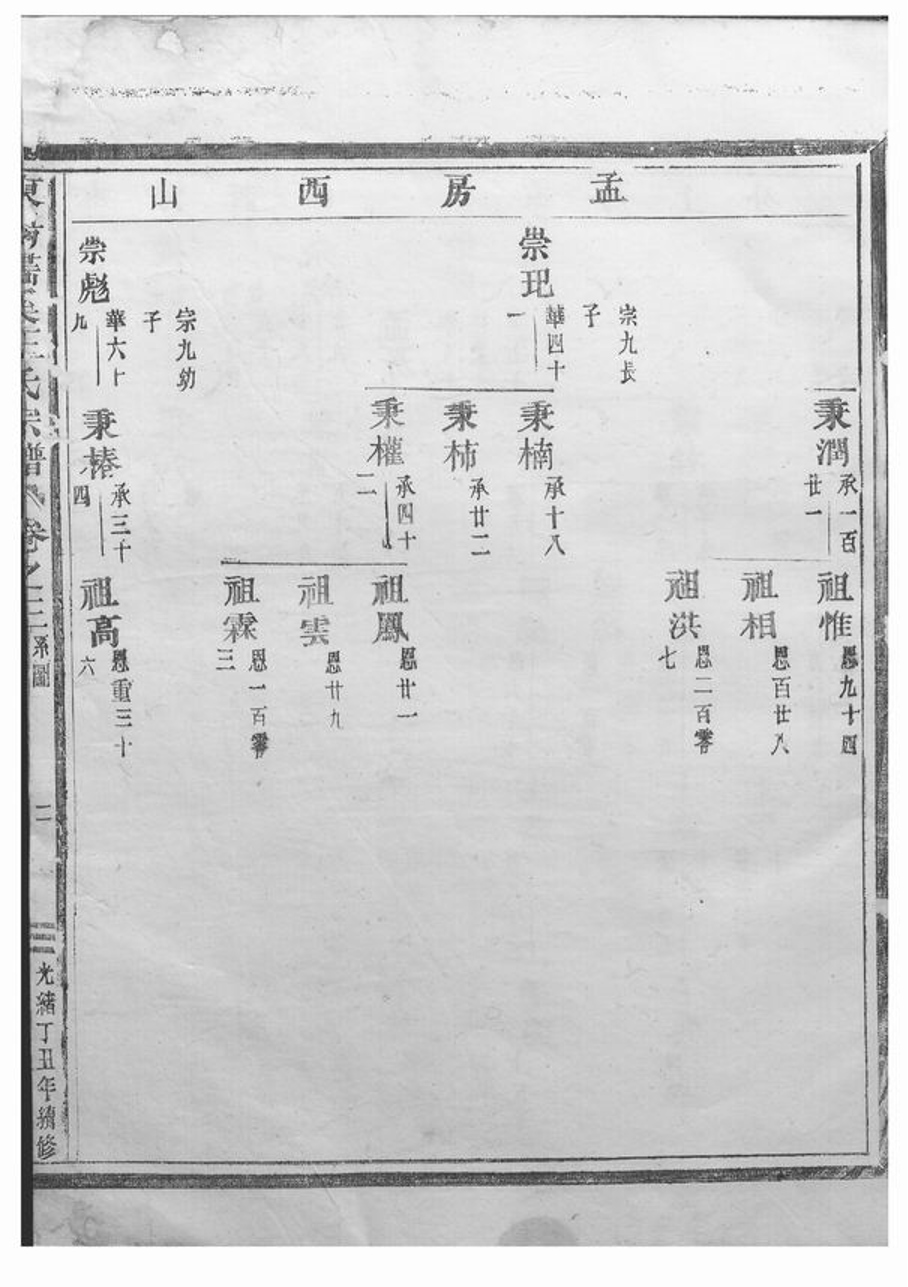 孟房西山
秉潤
承一百
廿一
祖惟
恩九十四
祖相
恩百廿八
祖洪
恩二百零
七
宗九長
子
崇玘
華四十
一
秉楠
承十八
秉柿
承廿二
秉權
承四十
二
祖鳳
恩廿一
祖雲
恩廿九
祖霖
恩一百零
三
宗九幼
子
崇彪
華六十
九
秉椿
承三十
四
祖高
恩重三十
六
氏宗譜 卷之 系圖
二
光緒丁丑年續修